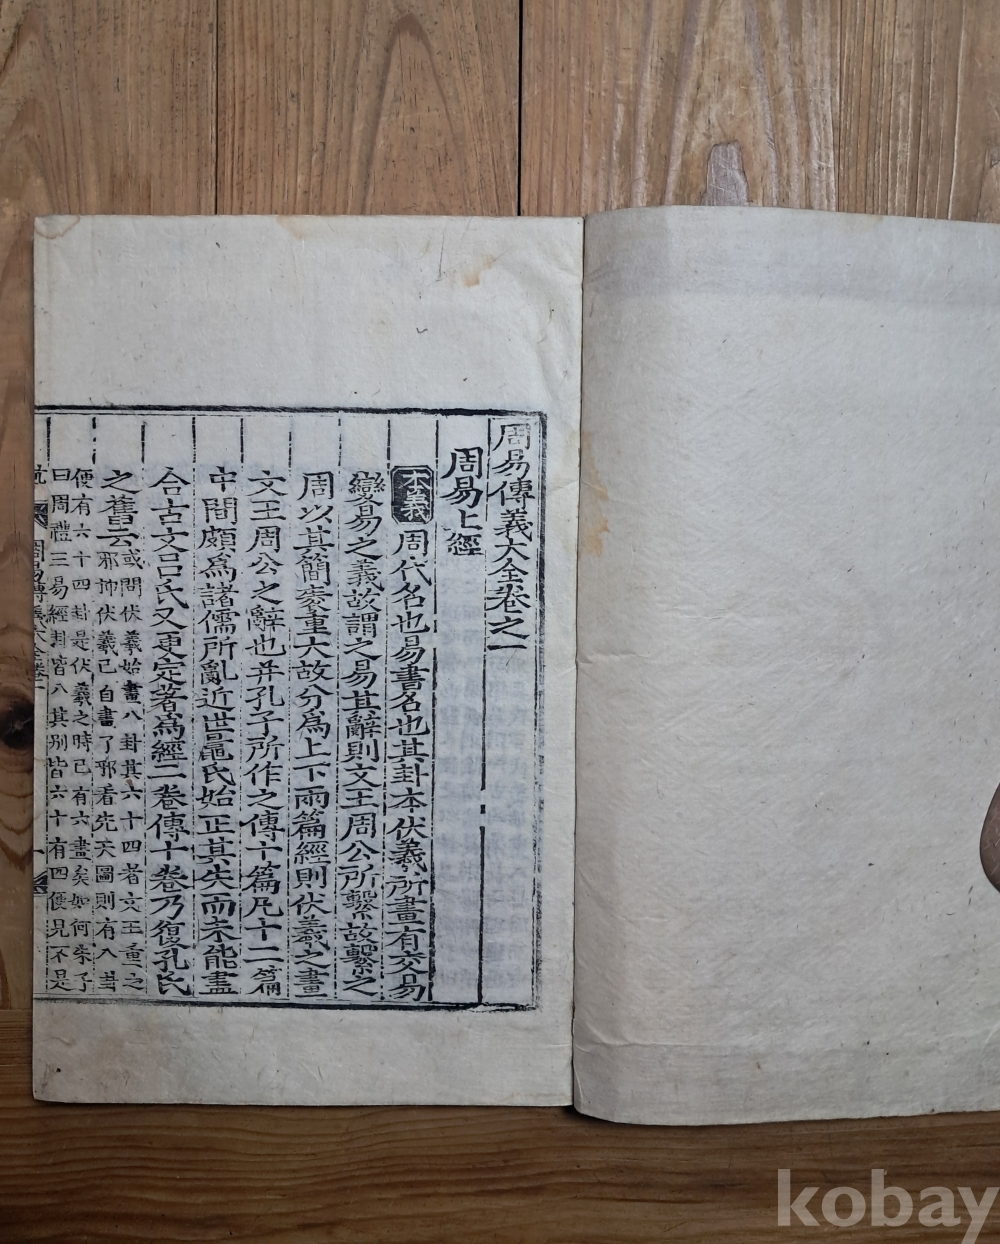 周易傳義大全卷之一
周易上經
本義周代名也易書名也其卦本伏羲所畫有交易
變易之義故謂之易其辭則文王周公所繫故繫之
周以其簡袠重大故分爲上下兩篇經則伏羲之畫
文王周公之辭也幷孔子所作之傳十篇凡十二篇
中間頗爲諸儒所亂近世晁氏始正其失而未能盡
合古文呂氏又更定著爲經二卷傳十卷乃復孔氏
之舊云
或問伏羲始畫八卦其六十四者文王重之
邪抑伏羲已自畫了邪看先天圖則有八卦
便有六十四卦是伏羲之時已有六畫矣如何朱子
曰周禮三易經卦皆八其別皆六十有四便見不是
周易傳義大全卷一
kobay